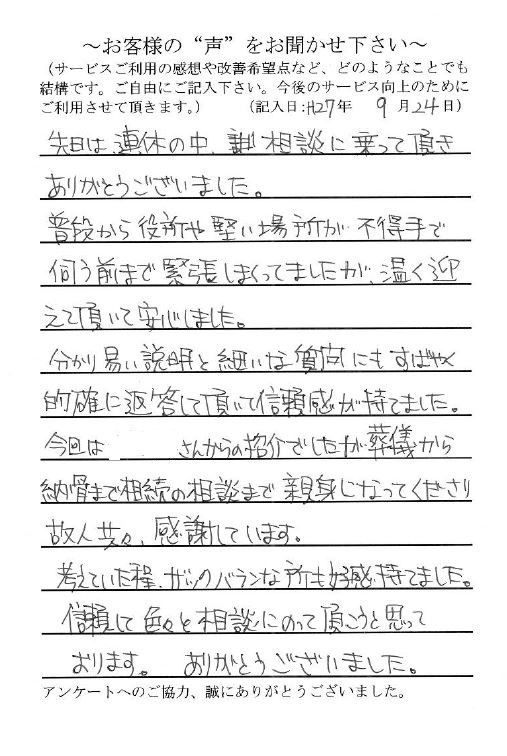 ～お客様の“声”をお聞かせ下さい～
（サービスご利用の感想や改善希望点など、どのようなことでも
結構です。ご自由にご記入下さい。今後のサービス向上のために
ご利用させて頂きます。）　（記入日:H27年 9月24日）
先日は、連休の中、相談に乗って頂き
ありがとうございました。
普段から役所や堅い場所が不得手で
伺う前まで緊張しまくってましたが、温く迎
えて頂いて安心しました。
分かり易い説明と細いな質問にもすばやく
的確に返答して頂いて信頼感が持てました。
今回は　　　さんからの紹介でしたが葬儀から
納骨まで相続の相談まで親身になってくださり
故人共々、感謝しています。
考えていた程、ザックバランな所も好感持てました。
信頼して色々と相談にのって頂こうと思って
おります。　ありがとうございました。
アンケートへのご協力、誠にありがとうございました。